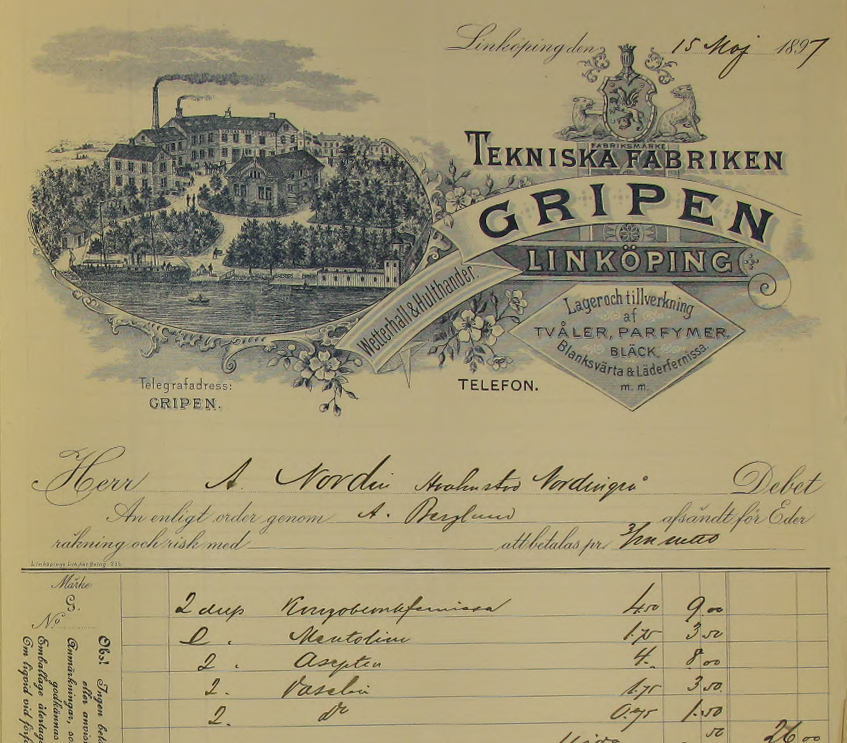 Linköping den 15 Maj 1897
FABRIKSMÄRKE
TEKNISKA FABRIKEN
GRIPEN
LINKÖPING
Wetterhall & Hulthander.
Lager och tillverkning
af
TVÅLER, PARFYMER.
BLÄCK.
Blanksvärta & Läderfernissa.
m. m.
Telegrafadress:
GRIPEN.
TELEFON.
Herr A. Nordin Nordingrå Debet
An enligt order genom A. Berglund afsändt för Eder
räkning och risk med att betalas pr netto
Märke
No
Obs! Ingen
eller
Anmärkningar,
godkännas
Emballage
Om likvid vid
2 dup 4.50 9.00
2 . Mentolin 1.75 3.50
2 . Asepten 4. 8.00
2 . Vaselin 1.75 3.50
2 . do 0.75 1.50
50 26 00